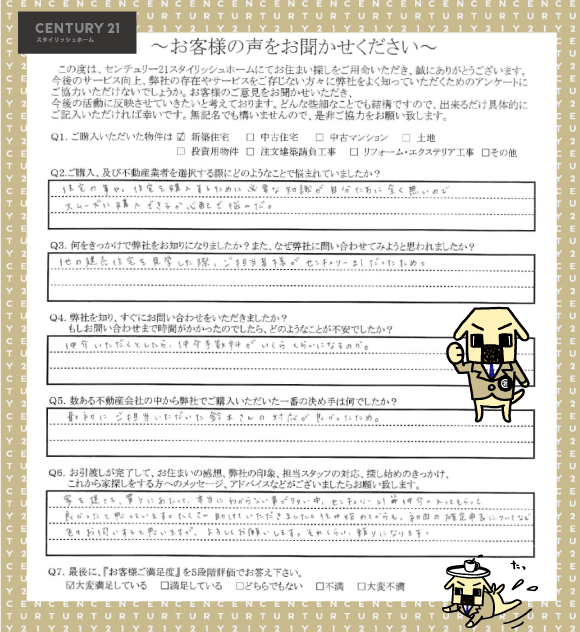 CENTURY 21
スタイリッシュホーム
～お客様の声をお聞かせください～
この度は、センチュリー21スタイリッシュホームにてお住まい探しをご用命いただき、誠にありがとうございます。
今後のサービス向上、弊社の存在やサービスをご存じない方々に弊社をよく知っていただくためのアンケートに
ご協力いただけないでしょうか。お客様のご意見をお聞かせいただき、
今後の活動に反映させていきたいと考えております。どんな些細なことでも結構ですので、出来るだけ具体的に
ご記入いただければ幸いです。無記名でも構いませんので、是非ご協力をお願い致します。
Q1. ご購入いただいた物件は ☑ 新築住宅 □ 中古住宅 □ 中古マンション □ 土地
□ 投資用物件 □ 注文建築請負工事 □ リフォーム・エクステリア工事 □その他
Q2.ご購入、及び不動産業者を選択する際にどのようなことで悩まれていましたか？
住宅の事や、住宅を購入するために必要な知識が自分たちに全く無いので
スムーズに購入できるか心配で悩んだ。
Q3. 何をきっかけで弊社をお知りになりましたか？また、なぜ弊社に問い合わせてみようと思われましたか？
他の建売住宅を見学した際、ご担当者様がセンチュリー21だったため。
Q4. 弊社を知り、すぐにお問い合わせをいただきましたか？
もしお問い合わせまで時間がかかったのでしたら、どのようなことが不安でしたか？
仲介いただくとしたら、仲介手数料がいくらくらいになるのか。
Q5. 数ある不動産会社の中から弊社でご購入いただいた一番の決め手は何でしたか？
最初にご担当いただいた鈴木さんの対応が良かったため。
Q6. お引渡しが完了して、お住まいの感想、弊社の印象、担当スタッフの対応、探し始めのきっかけ、
これから家探しをする方へのメッセージ、アドバイスなどがございましたらお願い致します。
家を建てる、買うにあたって、本当にわからない事が多い中、センチュリー21 仲介へ入ってもらって
良かったと思っています。たくさん助けていただきました。住み始めてからも、初回の確定申告についてなど
色々お伺いすると思いますが、よろしくお願いします。
Q7. 最後に、『お客様ご満足度』を5段階評価でお答え下さい。
☑大変満足している □満足している □どちらでもない □不満 □大変不満
たっ